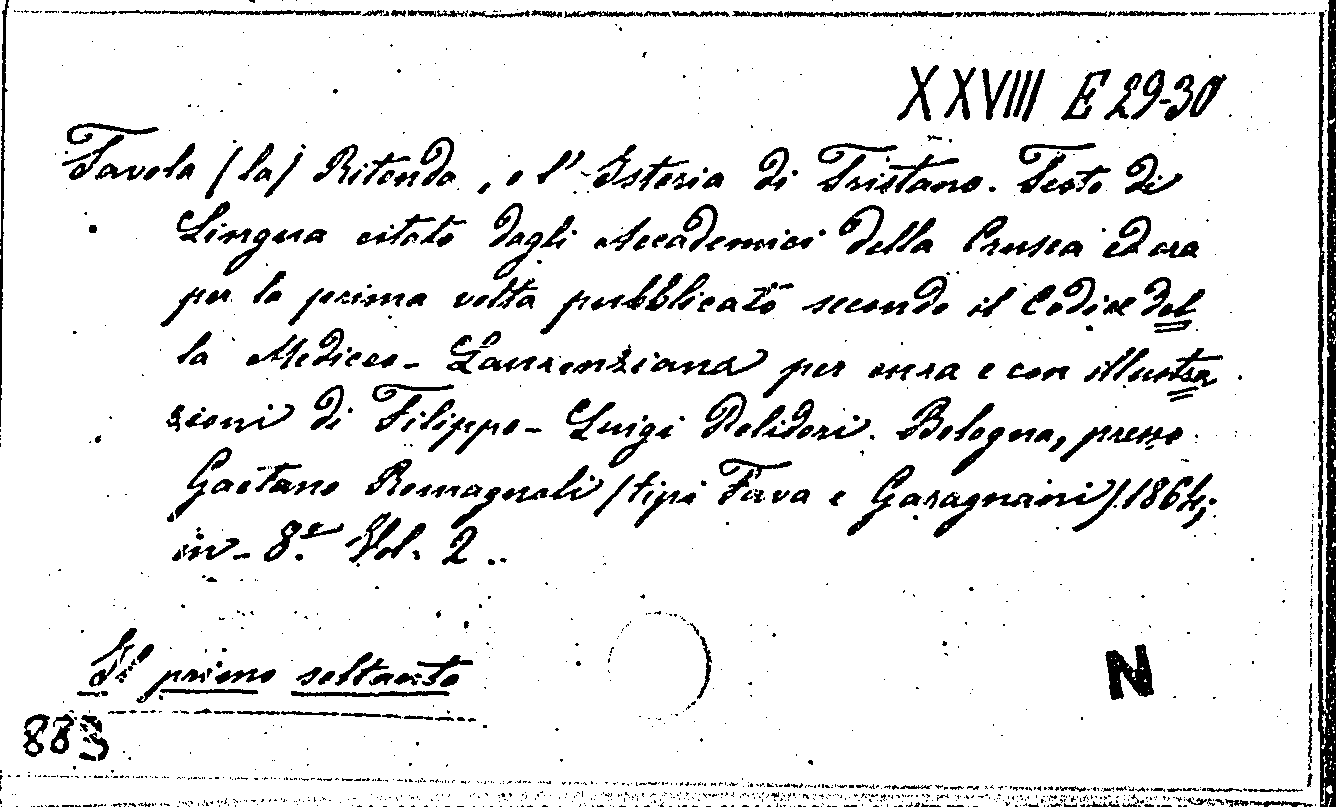 XXVIII E 29-30
Tavola (la) Ritonda, o l'Istoria di Tristano. Testo di
Lingua citato dagli Accademici della Crusca ed ora
per la prima volta pubblicato secondo il Codice del
la Mediceo-Laurenziana per cura e con illustra
zioni di Filippo-Luigi Polidori. Bologna, presso
Gaetano Romagnoli (tipi Fava e Garagnani) 1864;
in-8.° Vol. 2..
Il primo soltanto
N
883